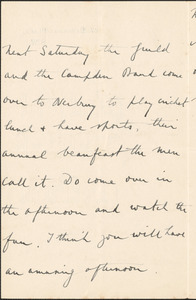 next Saturday the Guild
and the Campden Band come
over to Norbury to play cricket
lunch & have sports, their
annual beanfeast the men
call it. Do come over in
the afternoon and watch the
fun. I think you will have
an amusing afternoon.